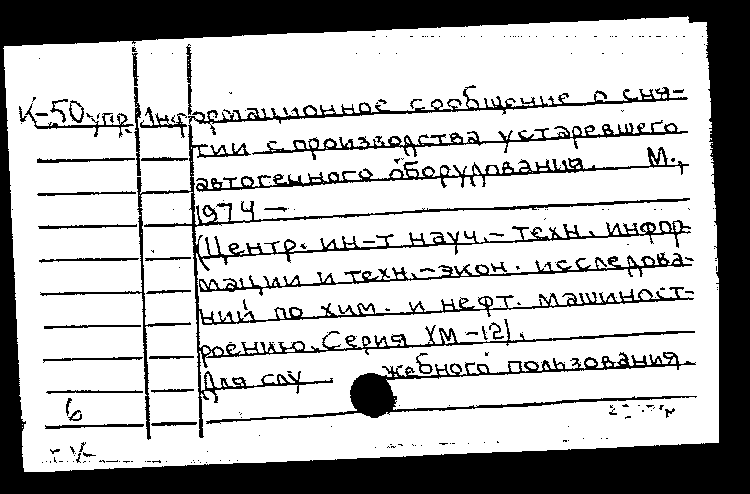 К-50 упр. Информационное сообщение о сня-
тии с производства устаревшего
автогенного оборудования. М.,
1974 —
(Центр. ин-т науч.-техн. инфор-
мации и техн.-экон. исследова-
ний по хим. и нефт. машиност-
роению. Серия ХМ-12).
Для слу жебного пользования.
6